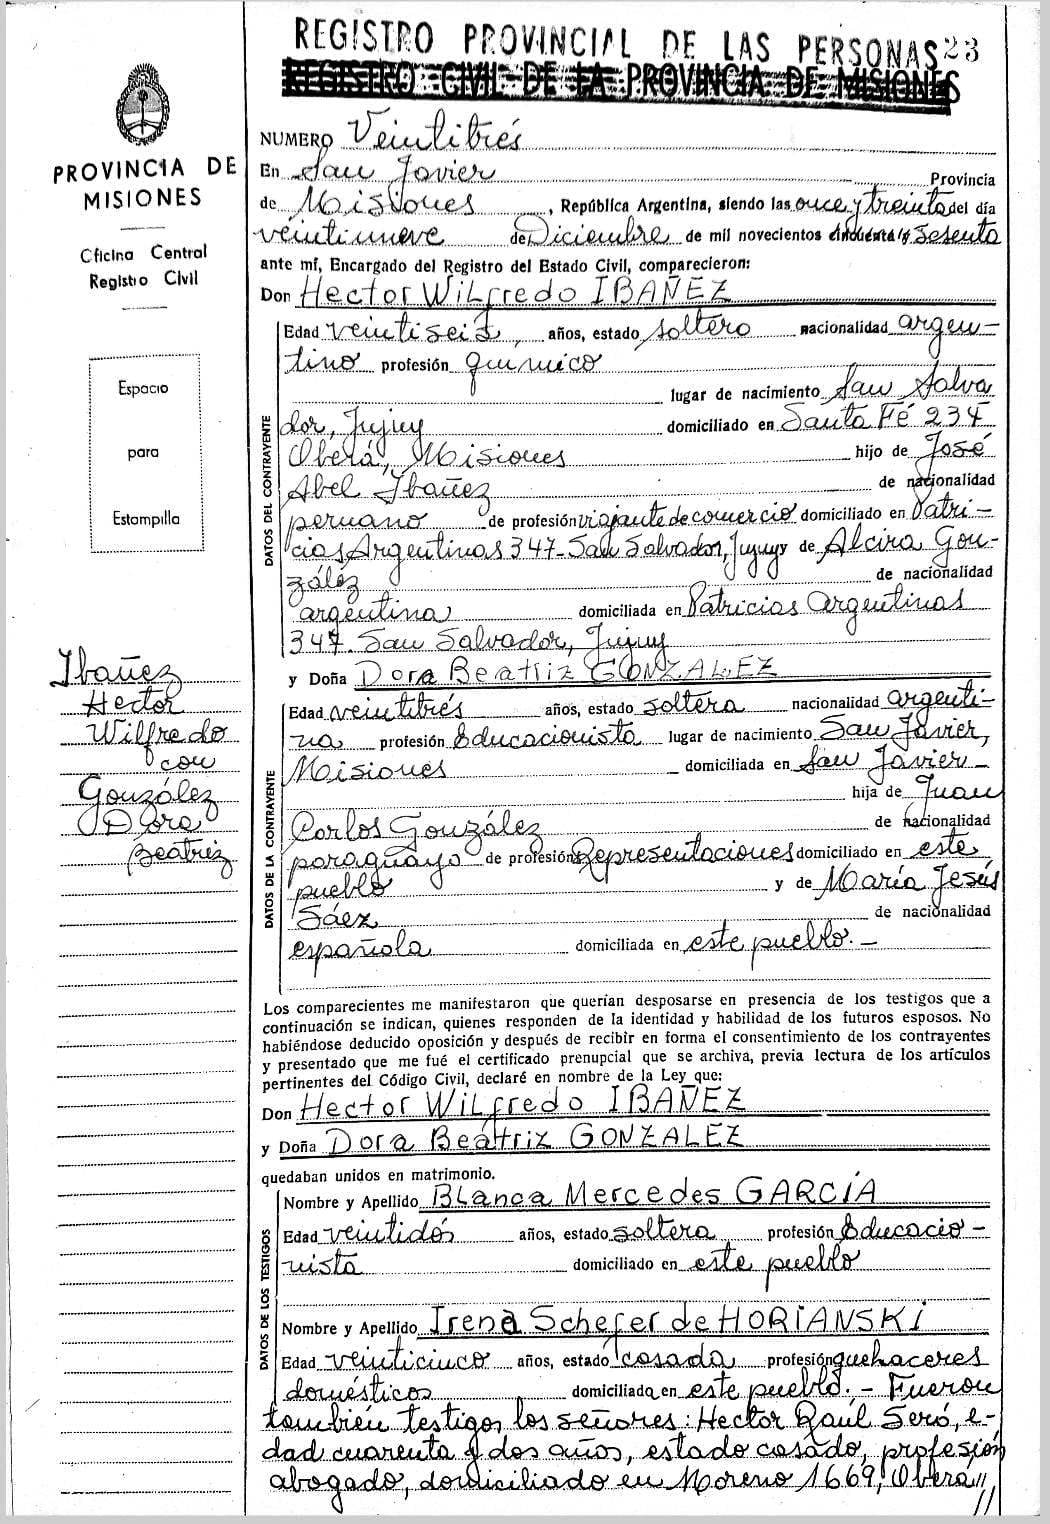 REGISTRO PROVINCIAL DE LAS PERSONAS 23
REGISTRO CIVIL DE LA PROVINCIA DE MISIONES
PROVINCIA DE
MISIONES
Oficina Central
Registro Civil
Espacio
para
Estampilla
Ibañez
Hector
Wilfredo
con
González
Dora
Beatriz
NUMERO Veintitrés
En San Javier Provincia
de Misiones, República Argentina, siendo las once y treinta del día
veintinueve de Diciembre de mil novecientos cincuenta y sesenta
ante mí, Encargado del Registro del Estado Civil, comparecieron:
Don Hector Wilfredo IBAÑEZ
DATOS DEL CONTRAYENTE
Edad veintiseis, años, estado soltero nacionalidad argen-
tino profesión químico
lugar de nacimiento San Salva
dor, Jujuy domiciliado en Santa Fé 234
Oberá, Misiones hijo de José
Abel Ibañez de nacionalidad
peruano de profesión viajante de comercio domiciliado en Patri-
cias Argentinas 347-San Salvador, Jujuy de Alcira Gon-
zález de nacionalidad
argentina domiciliada en Patricias Argentinas
347. San Salvador, Jujuy
y Doña Dora Beatriz GONZALEZ
DATOS DE LA CONTRAYENTE
Edad veintitrés años, estado soltera nacionalidad argenti-
na profesión Educacionista lugar de nacimiento San Javier,
Misiones domiciliada en San Javier-
hija de Juan
Carlos González de nacionalidad
paraguayo de profesión Representaciones domiciliado en este
pueblo y de María Jesús
Sáez de nacionalidad
española domiciliada en este pueblo.-
Los comparecientes me manifestaron que querían desposarse en presencia de los testigos que a
continuación se indican, quienes responden de la identidad y habilidad de los futuros esposos. No
habiéndose deducido oposición y después de recibir en forma el consentimiento de los contrayentes
y presentado que me fué el certificado prenupcial que se archiva, previa lectura de los artículos
pertinentes del Código Civil, declaré en nombre de la Ley que:
Don Hector Wilfredo IBAÑEZ
y Doña Dora Beatriz GONZALEZ
quedaban unidos en matrimonio.
DATOS DE LOS TESTIGOS
Nombre y Apellido Blanca Mercedes GARCÍA
Edad veintidós años, estado soltera profesión Educacio-
nista domiciliado en este pueblo
Nombre y Apellido Irene Schefer de HORIANSKI
Edad veinticinco años, estado casada profesión quehaceres
domésticos domiciliada en este pueblo.- Fueron
también testigos los señores: Hector Raúl Seró, e-
dad cuarenta y dos años, estado casado, profesión
abogado, domiciliado en Moreno 1669, Oberá//
//